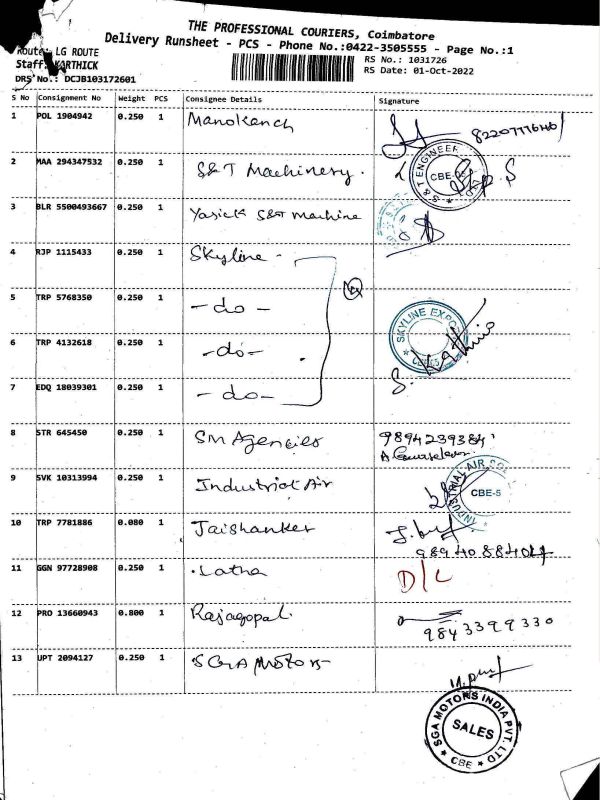 THE PROFESSIONAL COURIERS, Coimbatore
Delivery Runsheet - PCS - Phone No.:0422-3505555 - Page No.:1
Route: LG ROUTE
Staff: KARTHICK
DRS No.: DCJB103172601
RS No.: 1031726
RS Date: 01-Oct-2022
S No Consignment No Weight PCS Consignee Details Signature
1 POL 1904942 0.250 1 Manokanch
2 MAA 294347532 0.250 1 S&T Machinery.
S & T ENGINEER
CBE-05
3 BLR 5500493667 0.250 1 Yasick S&T machine
4 RJP 1115433 0.250 1 Skyline - 4
5 TRP 5768350 0.250 1 -do-
6 TRP 4132618 0.250 1 -do-
SKYLINE EXPO
S. Karthic
7 EDQ 18039301 0.250 1 -do-
8 STR 645450 0.250 1 SM Agencies 9894239384
9 SVK 10313994 0.250 1 Industrial Air
INDUSTRIAL AIR SO
CBE-5
10 TRP 7781886 0.080 1 Jaishanker
11 GGN 97728908 0.250 1 Latha D/L
12 PRO 13660943 0.800 1 Rajagopal. 9843399330
13 UPT 2094127 0.250 1 SGA Motors
SGA MOTORS INDIA PVT. LTD
SALES
CBE